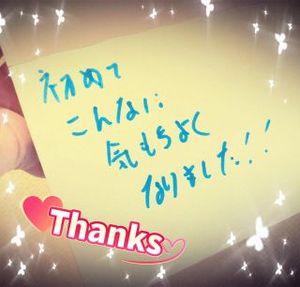 初めて
こんなに
気もちよく
なりました!!
Thanks